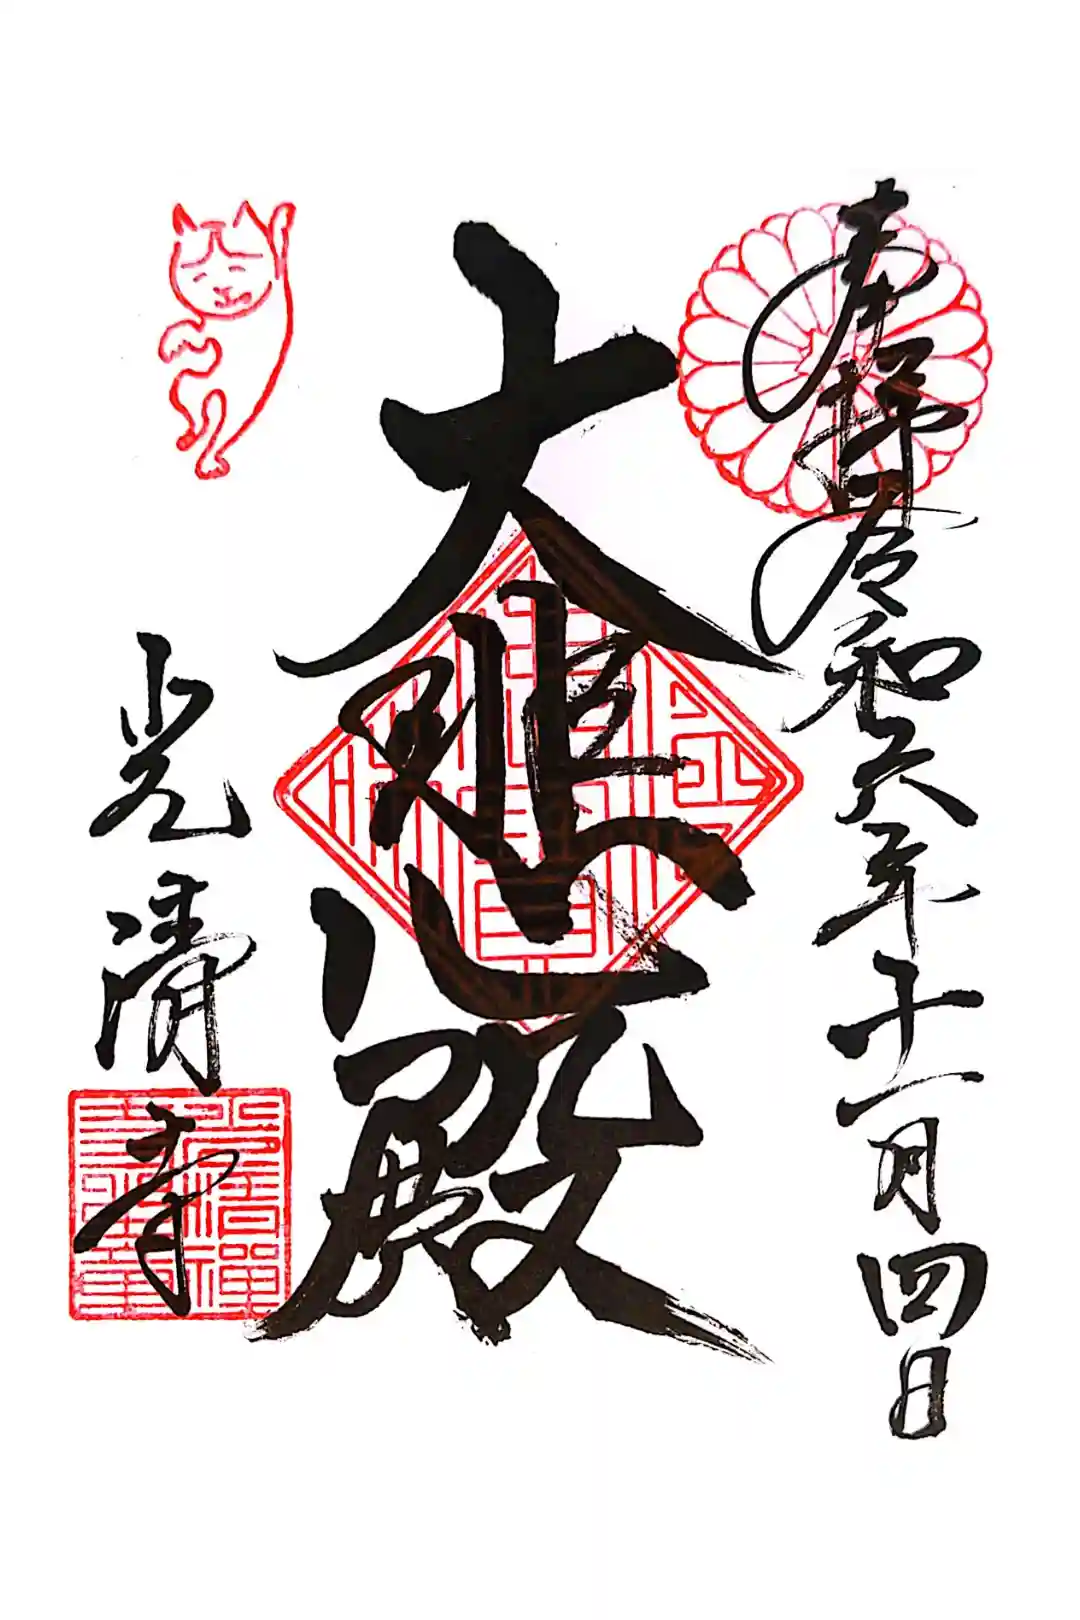 奉拝 令和六年十一月四日
大悲殿
光清寺